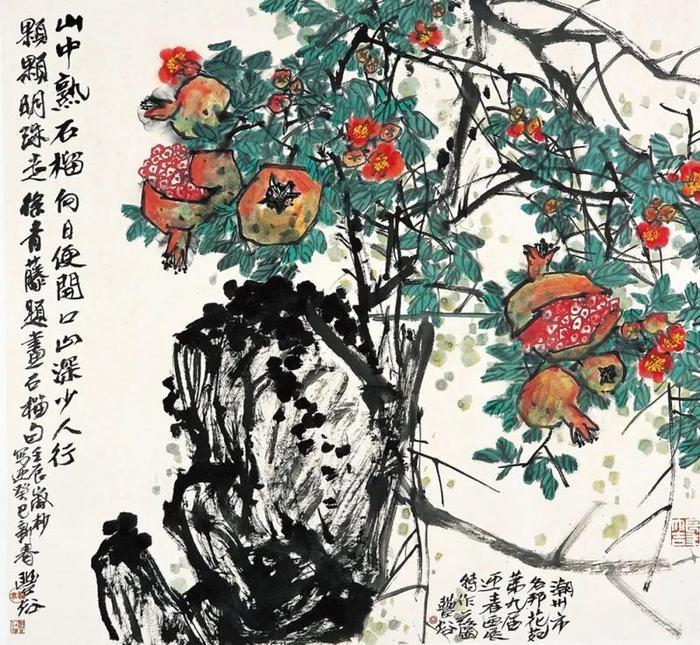 山中熟石榴向日便開口山深少人行
顆顆明珠走徐青藤題畫石榴句壬辰歲杪
寫迎癸巳新春
潮州市
名邦花苑
第九屆
迎春畫展
特作此圖